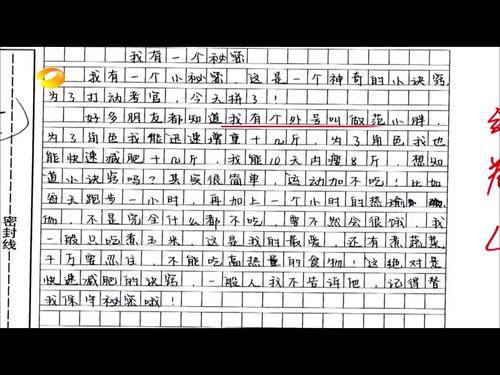 我有一个秘密
我有一个小秘密，这是一个神奇的小诀窍，
为了打动考官，今天拼了！
好多朋友都知道我有个外号叫做范小胖，
为了角色我能迅速增重十几斤，为了角色我也
能快速减肥十几斤，我能10天内瘦8斤，想知
道小诀窍吗？其实很简单，运动加不吃！比如
每天跑步一小时，再加上一个小时的热瑜
，不是完全什么都不吃，要不然会很饿，我一
般只吃煮玉米，这是我的最爱，还有煮蔬菜，
千万要忍住，不能吃高热量的食物！这绝对是
快速减肥的诀窍，一般人我不告诉他，记得替
我保守秘密哦！
密封线